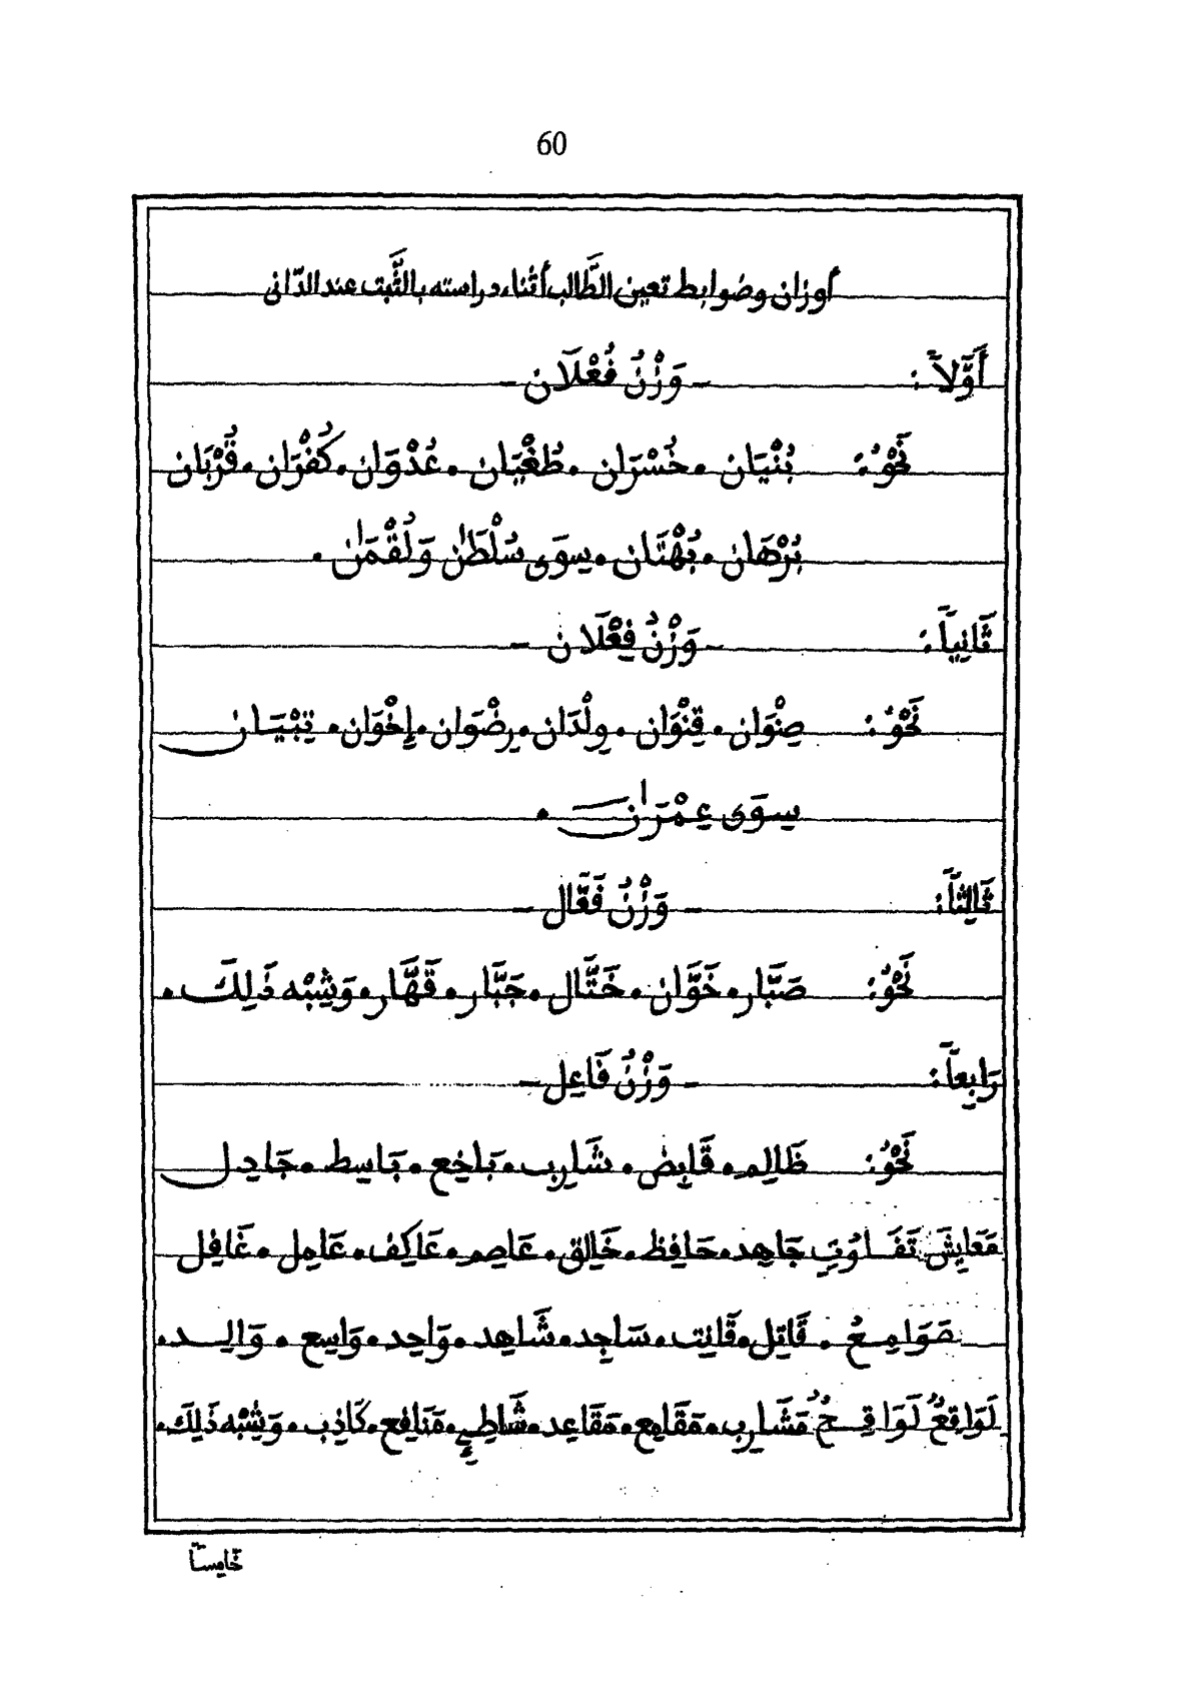 60
أوزان وضوابط تعين الطَّالب أثناء دراسته بالثَّبت عند الدّانى
أَوَّلاً: - وَزْنُ فُعْلَان -
نَحْوُ: بُنْيَان . خُسْرَان . طُغْيَان . عُدْوَان . كُفْرَان . قُرْبَان
بُرْهَان . بُهْتَان . سِوَى سُلْطَٰن وَلُقْمَٰن .
ثَانِياً: - وَزْنُ فِعْلَان -
نَحْوُ: صِنْوَان . قِنْوَان . وِلْدَان . رِضْوَان . إِخْوَان . تِبْيَان
سِوَى عِمْرَٰن .
ثَالِثاً: - وَزْنُ فَعَّال -
نَحْوُ: صَبَّار . خَوَّان . خَتَّال . جَبَّار . قَهَّار . وَشِبْه ذَلِكَ .
رَابِعاً: - وَزْنُ فَاعِل -
نَحْوُ: ظَالِم . قَابِض . شَارِب . بَاخِع . بَاسِط . جَادِل
مَعَايِشَ تَفَاوُتٍ جَاهِد . حَافِظ . خَالِق . عَاصِم . عَاكِف . عَامِل . غَافِل
صَوَامِعُ . قَاتِل . قَانِت . سَاجِد . شَاهِد . وَاحِد . وَاسِع . وَالِد .
لَوَاقِعٌ لَوَاقِحُ مَشَارِب . مَقَامِع . مَقَاعِد . شَاطِئِ . مَنَافِع . كَاذِب . وَشِبْه ذَلِكَ .
خَامِساً